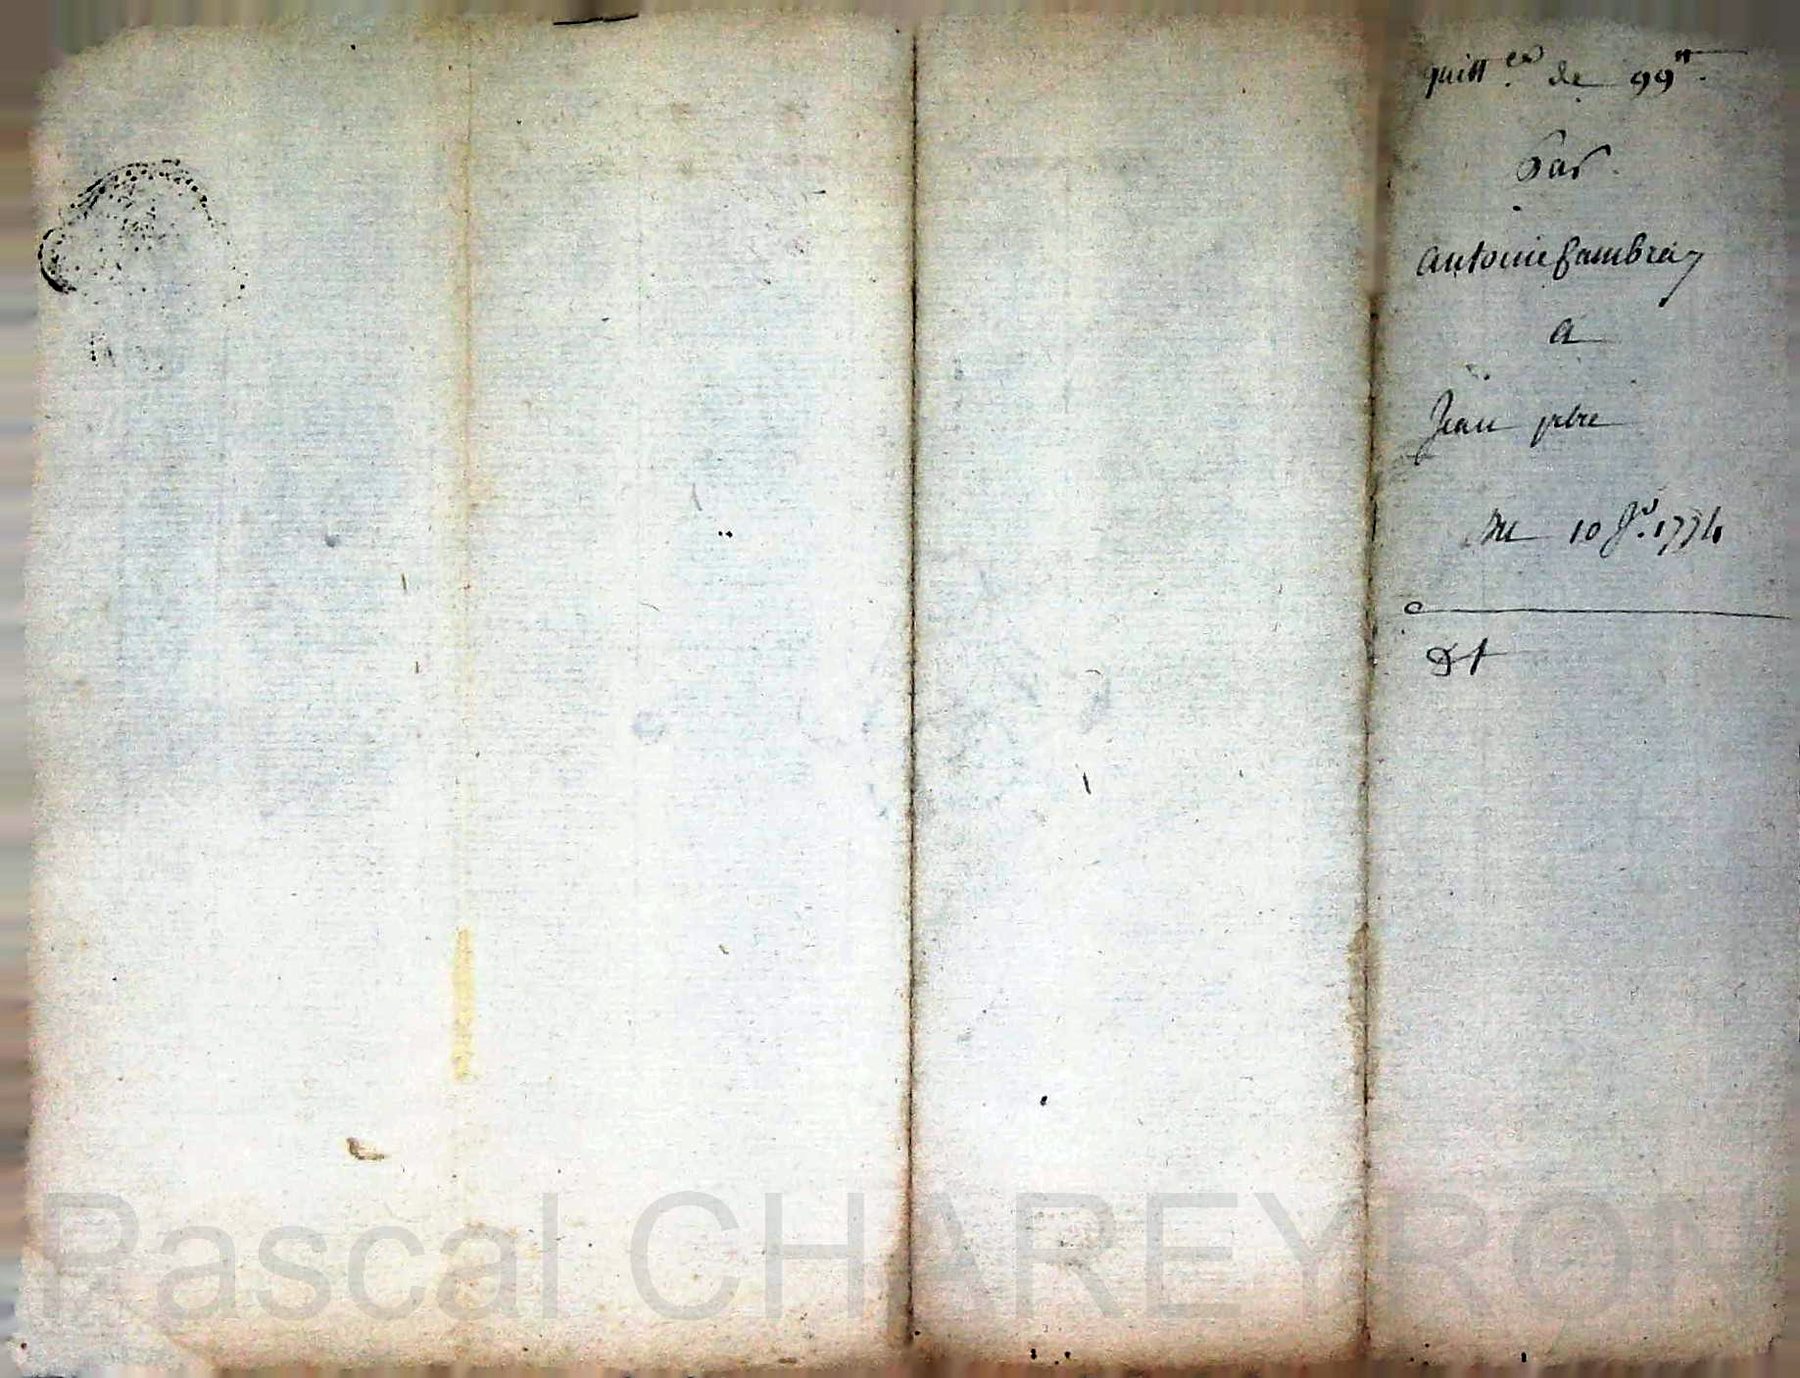 quitt.ce de 99tt.
Par
antoine Cambray
a
Jean pbre
Du 10 Jer. 1774
Pascal CHAREYRON